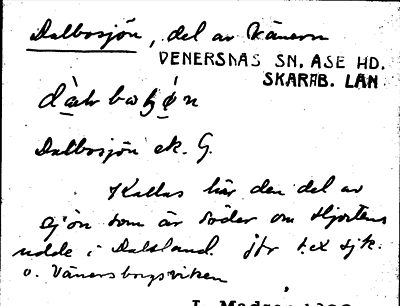 Dalbosjön, del av Vänern
VENERSNÄS SN. ÅSE HD.
SKARAB. LÄN
Dalbosjön ek. G.
Kallas här den del av
sjön som är söder om Hjortens
udde i Dalsland. jfr t.ex sjk.
o. Vänersborgsviken